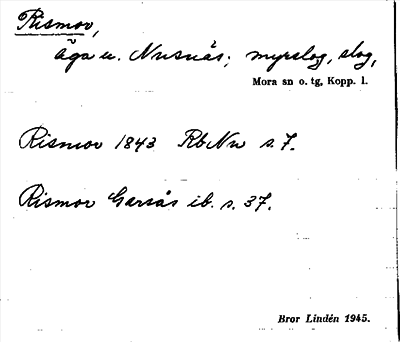 Rismor,
äga u. Nusnäs; myrslog, slog,
Mora sn o. tg, Kopp. l.
Rismor 1843 Rb Nu s. 7.
Rismor Garsås ib. s. 37.
Bror Lindén 1945.